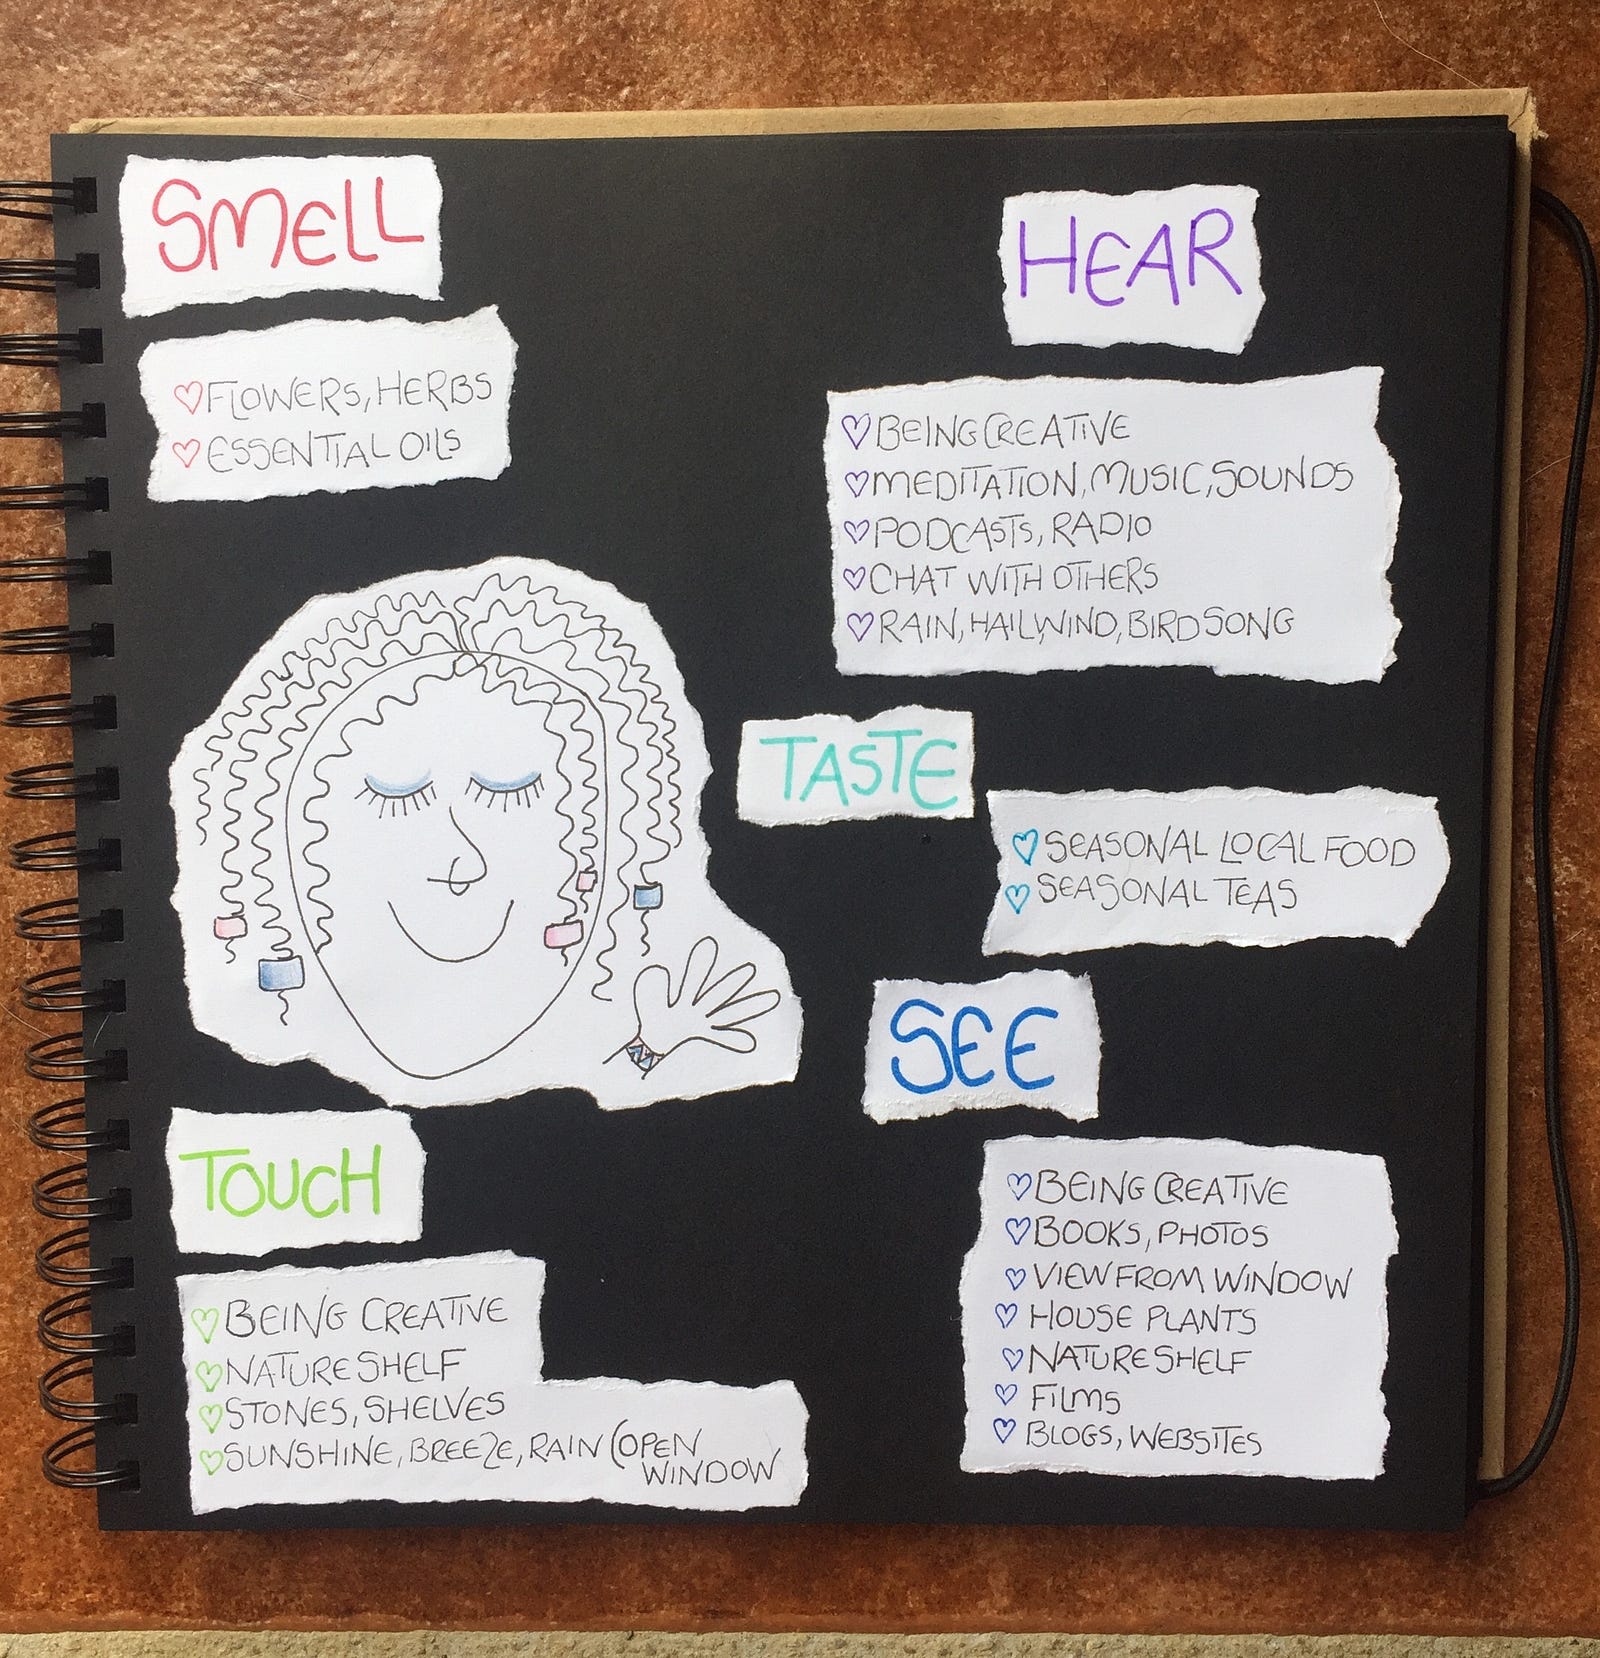 SMELL
FLOWERS, HERBS
ESSENTIAL OILS
HEAR
BEING CREATIVE
MEDITATION, MUSIC, SOUNDS
PODCASTS, RADIO
CHAT WITH OTHERS
RAIN, HAIL, WIND, BIRDSONG
TASTE
SEASONAL LOCAL FOOD
SEASONAL TEAS
SEE
BEING CREATIVE
BOOKS, PHOTOS
VIEW FROM WINDOW
HOUSE PLANTS
NATURE SHELF
FILMS
BLOGS, WEBSITES
TOUCH
BEING CREATIVE
NATURE SHELF
STONES, SHELVES
SUNSHINE, BREEZE, RAIN (OPEN
WINDOW